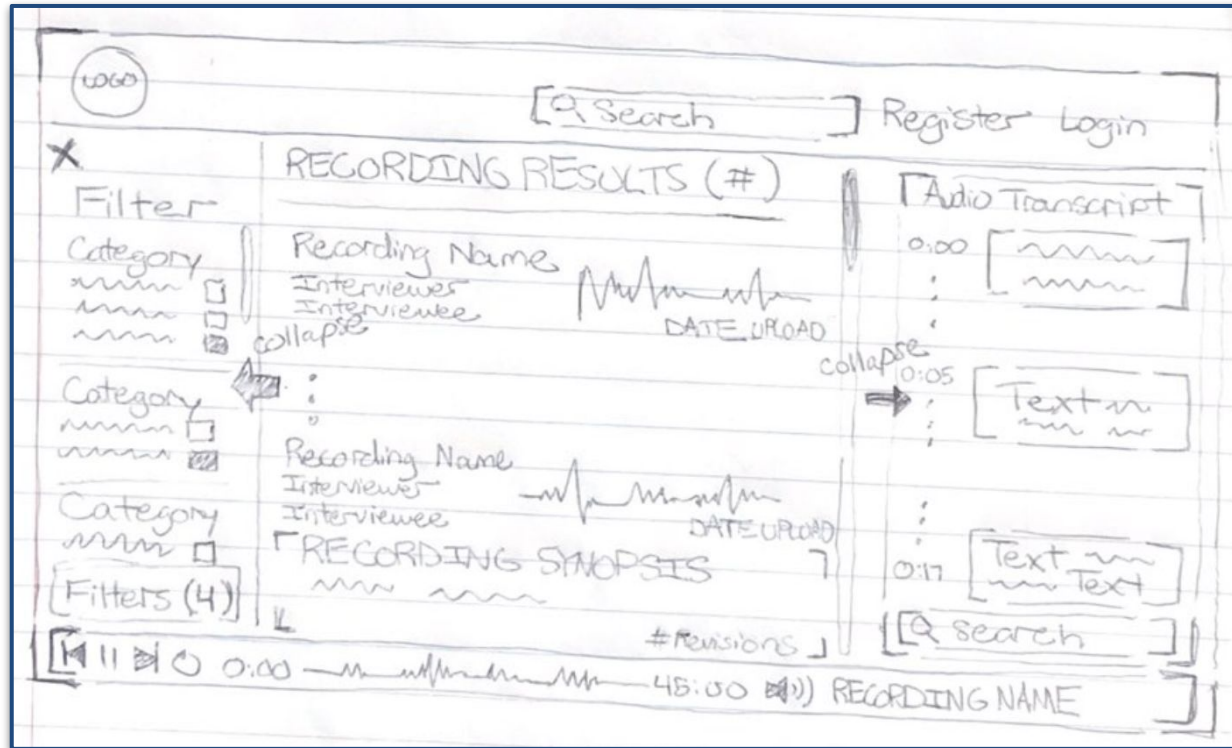 LOGO
Search
Register Login
X
Filter
Category
Category
Category
Filters (4)
collapse
RECORDING RESULTS (#)
Recording Name
Interviewer
Interviewee
DATE UPLOAD
Recording Name
Interviewer
Interviewee
DATE UPLOAD
RECORDING SYNOPSIS
#Revisions
collapse
Audio Transcript
0:00
0:05
Text
0:17
Text
Text
search
0:00
45:00
RECORDING NAME